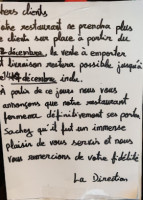 chers clients
otre restaurant ne prendra plus
e clients sur place à partir du
décembre, la vente à emporter
t livraison restera possible jusqu'à
14 décembre inclu.
À partir de ce jours nous vous
annonçons que notre restaurant
fermera définitivement ses portes
Sachez qu'il fut un immense
plaisir de vous servir et nous
vous remercions de votre fidélité
La Direction